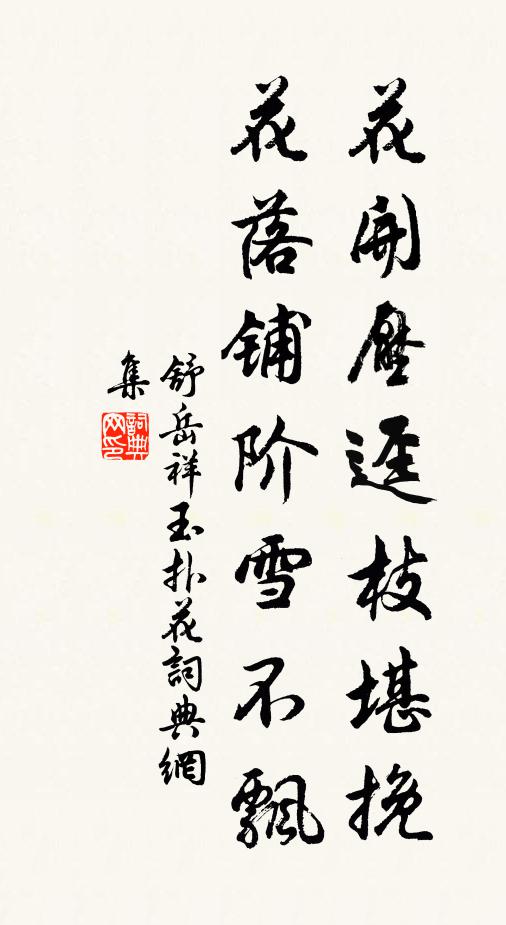 花開壓逕枝堪挽
花落铺阶雪不飄
舒岳祥玉扑花詞典網
集
詞典网印